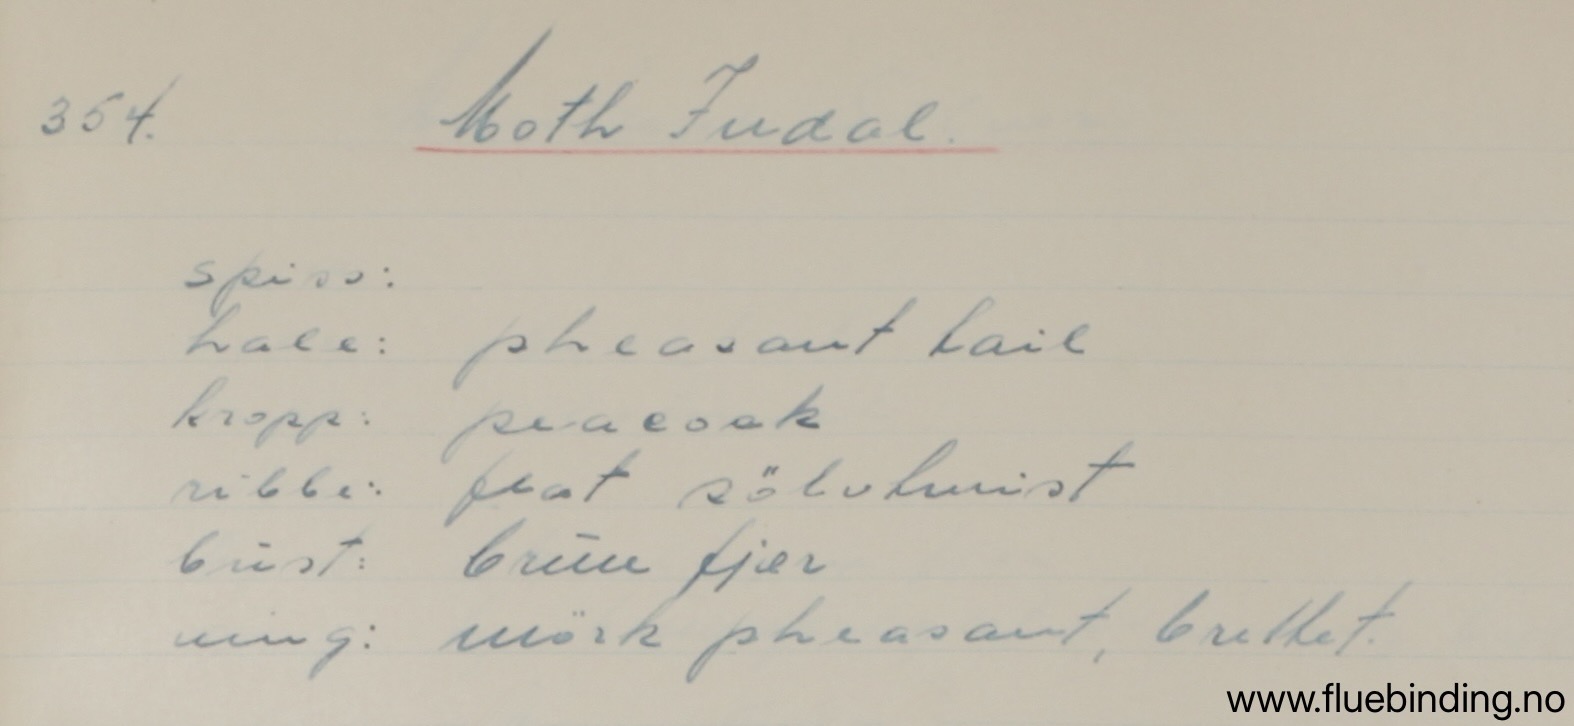 354. Moth Judal.
spiss:
hale: pheasant tail
kropp: peacock
ribbe: flat sölvtwist
büst: brün fjær
ving: mörk pheasant, brettet.
www.fluebinding.no